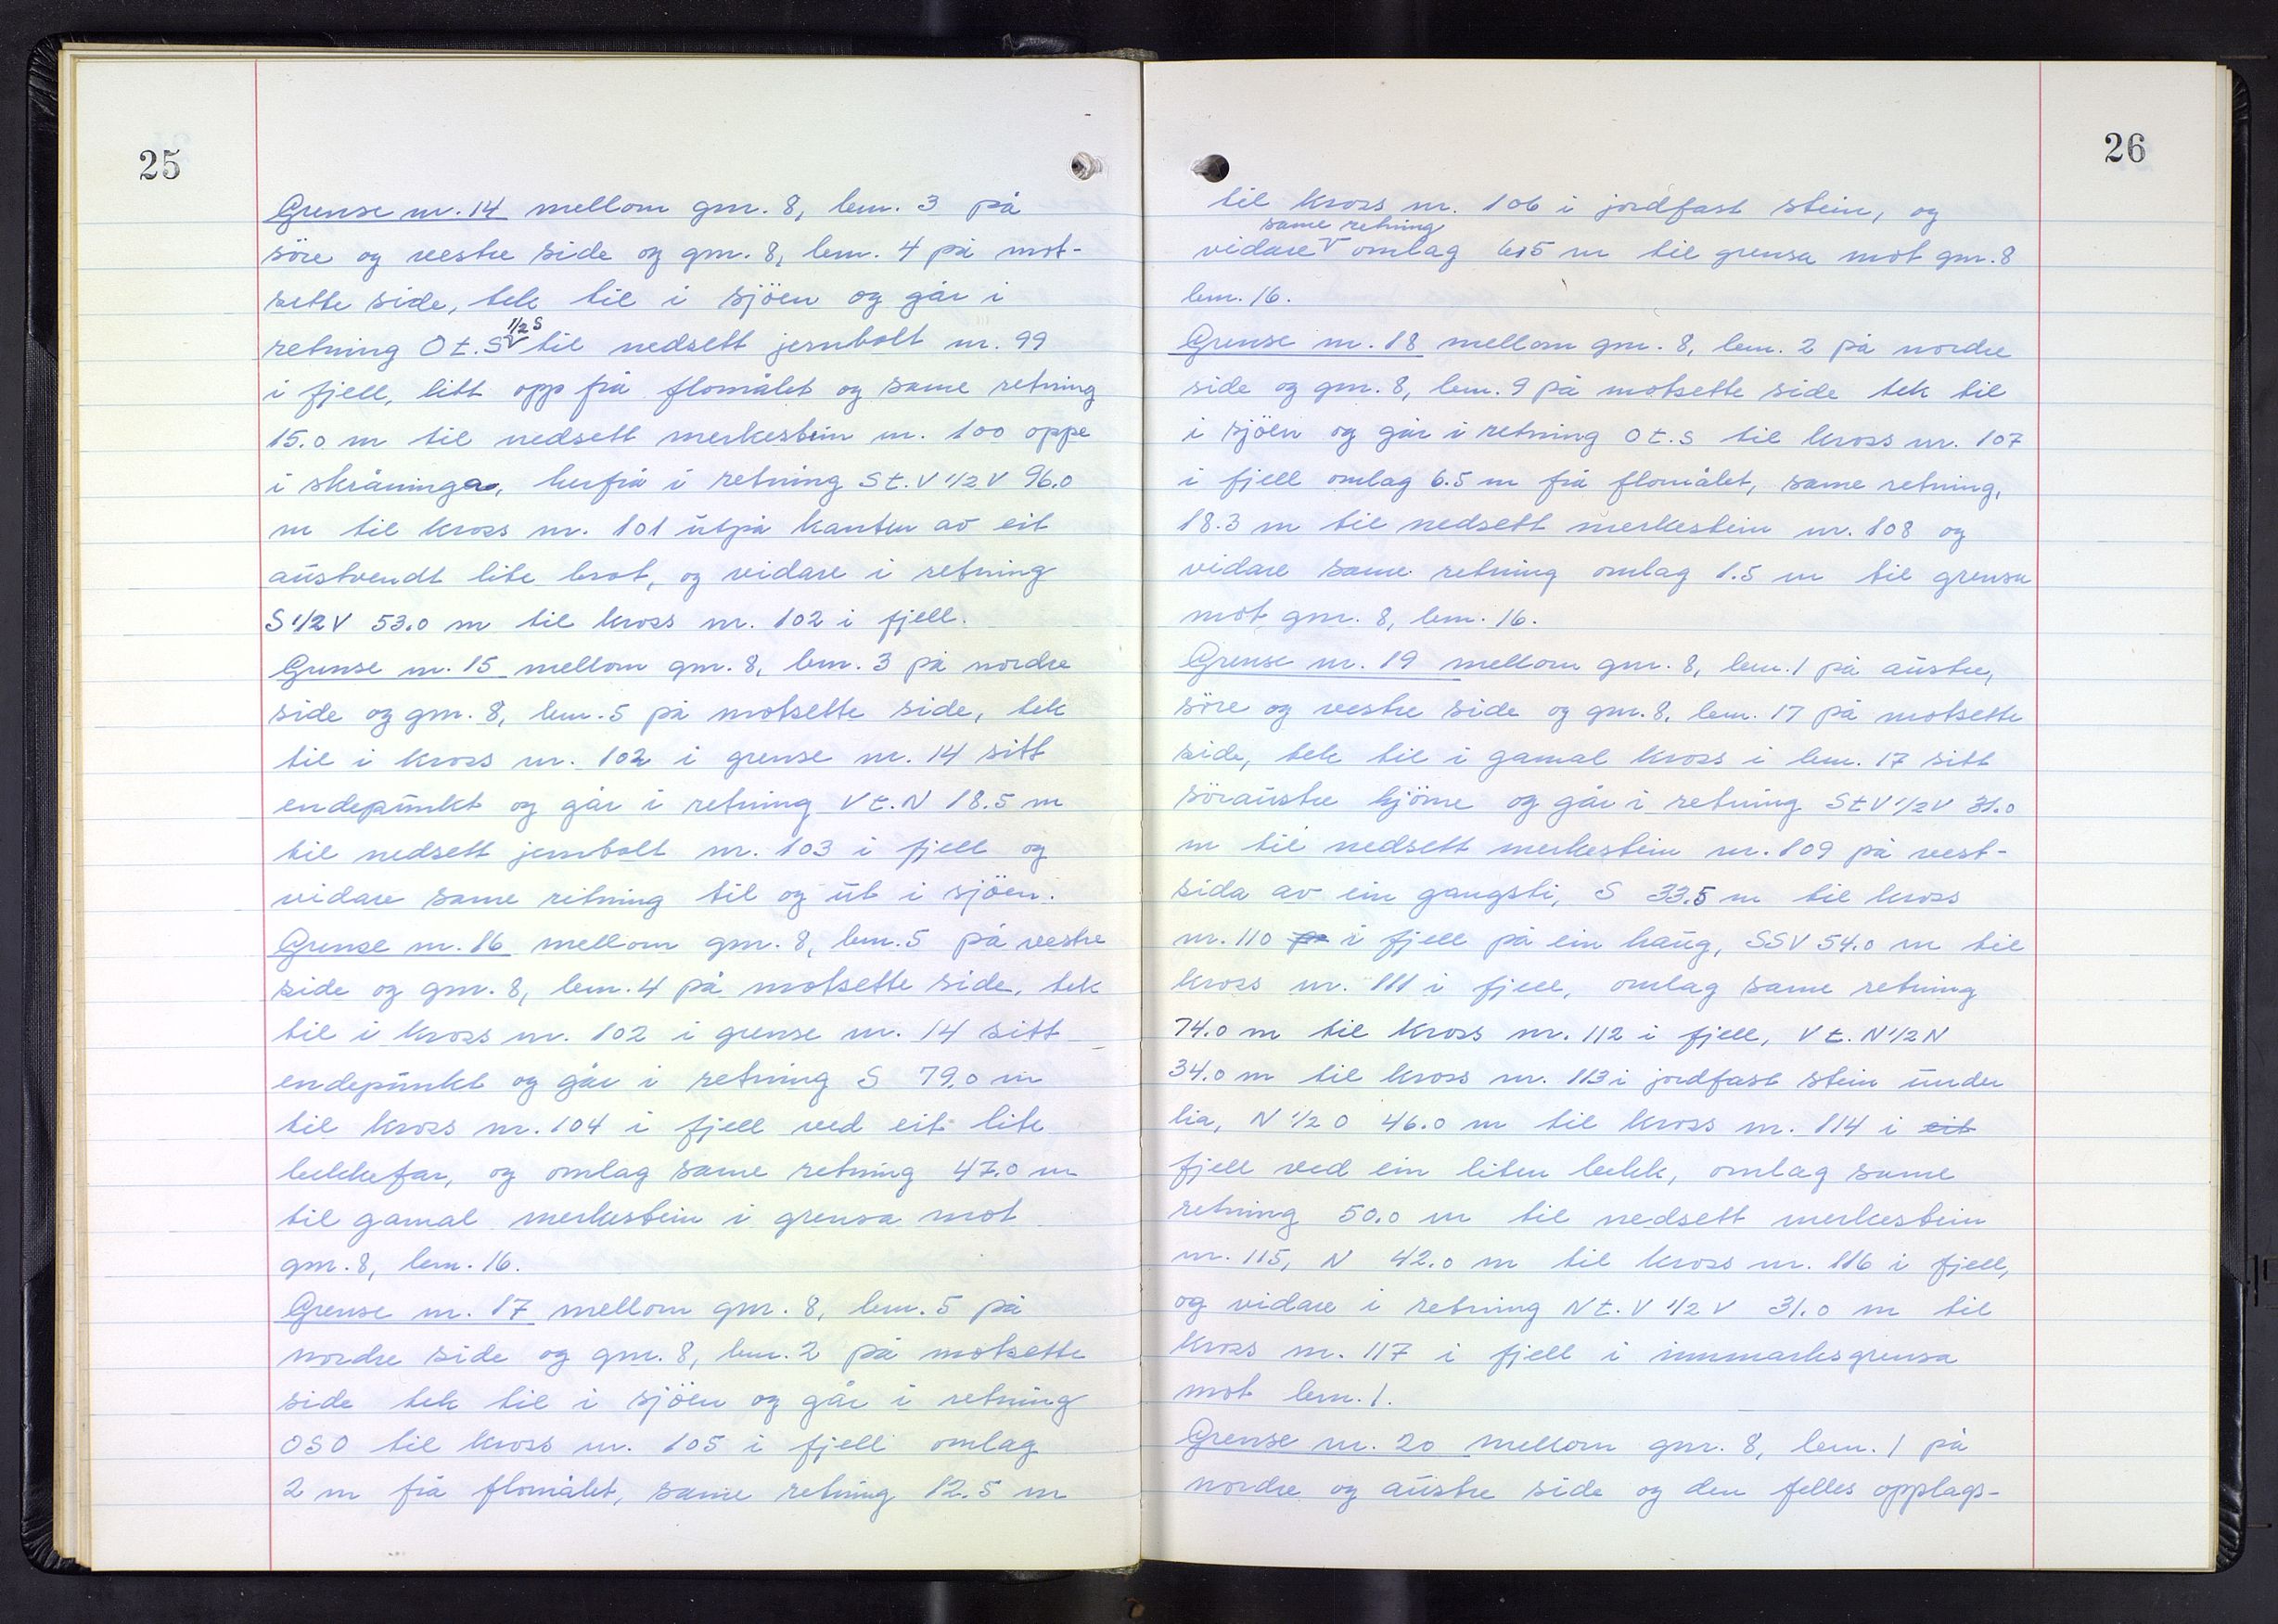 25
Grense nr. 14 mellom gnr. 8, bnr. 3 på
söre og vestre side og gnr. 8, bnr. 4 på mot-
sette side, tek til i sjöen og går i
1/2 S
retning O t. S V til nedsett jernbolt nr. 99
i fjell, litt opp frå flomålet og same retning
15.0 m til nedsett merkestein nr. 100 oppe
i skråninga, herfrå i retning S t. V 1/2 V 96.0
m til kross nr. 101 utpå kanten av eit
austvendt lite brot, og vidare i retning
S 1/2 V 53.0 m til kross nr. 102 i fjell.
Grense nr. 15 mellom gnr. 8, bnr. 3 på nordre
side og gnr. 8, bnr. 5 på motsette side, tek
til i kross nr. 102 i grense nr. 14 sitt
endepunkt og går i retning V t. N 18.5 m
til nedsett jernbolt nr. 103 i fjell og
vidare same retning til og ut i sjöen.
Grense nr. 16 mellom gnr. 8, bnr. 5 på vestre
side og gnr. 8, bnr. 4 på motsette side, tek
til i kross nr. 102 i grense nr. 14 sitt
endepunkt og går i retning S 79.0 m
til kross nr. 104 i fjell ved eit lite
bekkefar, og omlag same retning 47.0 m
til gamal merkestein i grensa mot
gnr. 8, bnr. 16.
Grense nr. 17 mellom gnr. 8, bnr. 5 på
nordre side og gnr. 8, bnr. 2 på motsette
side tek til i sjöen og går i retning
OSO til kross nr. 105 i fjell omlag
2 m frå flomålet, same retning 12.5 m
26
til kross nr. 106 i jordfast stein, og
same retning
vidare V omlag 6.5 m til grensa mot gnr. 8
bnr. 16.
Grense nr. 18 mellom gnr. 8, bnr. 2 på nordre
side og gnr. 8, bnr. 9 på motsette side tek til
i sjöen og går i retning O t. S til kross nr. 107
i fjell omlag 6.5 m frå flomålet, same retning,
18.3 m til nedsett merkestein nr. 108 og
vidare same retning omlag 1.5 m til grensa
mot gnr. 8, bnr. 16.
Grense nr. 19 mellom gnr. 8, bnr. 1 på austre,
söre og vestre side og gnr. 8, bnr. 17 på motsette
side, tek til i gamal kross i bnr. 17 sitt
söraustre hjörne og går i retning S t V 1/2 V 31.0
m til nedsett merkestein nr. 109 på vest-
sida av ein gangsti, S 33.5 m til kross
nr. 110 på i fjell på ein haug, SSV 54.0 m til
kross nr. 111 i fjell, omlag same retning
74.0 m til kross nr. 112 i fjell, V t. N 1/2 N
34.0 m til kross nr. 113 i jordfast stein under
lia, N 1/2 O 46.0 m til kross nr. 114 i eit
fjell ved ein liten bekk, omlag same
retning 50.0 m til nedsett merkestein
nr. 115, N 42.0 m til kross nr. 116 i fjell,
og vidare i retning N t. V 1/2 V 31.0 m til
kross nr. 117 i fjell i innmarksgrensa
mot bnr. 1.
Grense nr. 20 mellom gnr. 8, bnr. 1 på
nordre og austre side og den felles opplags-